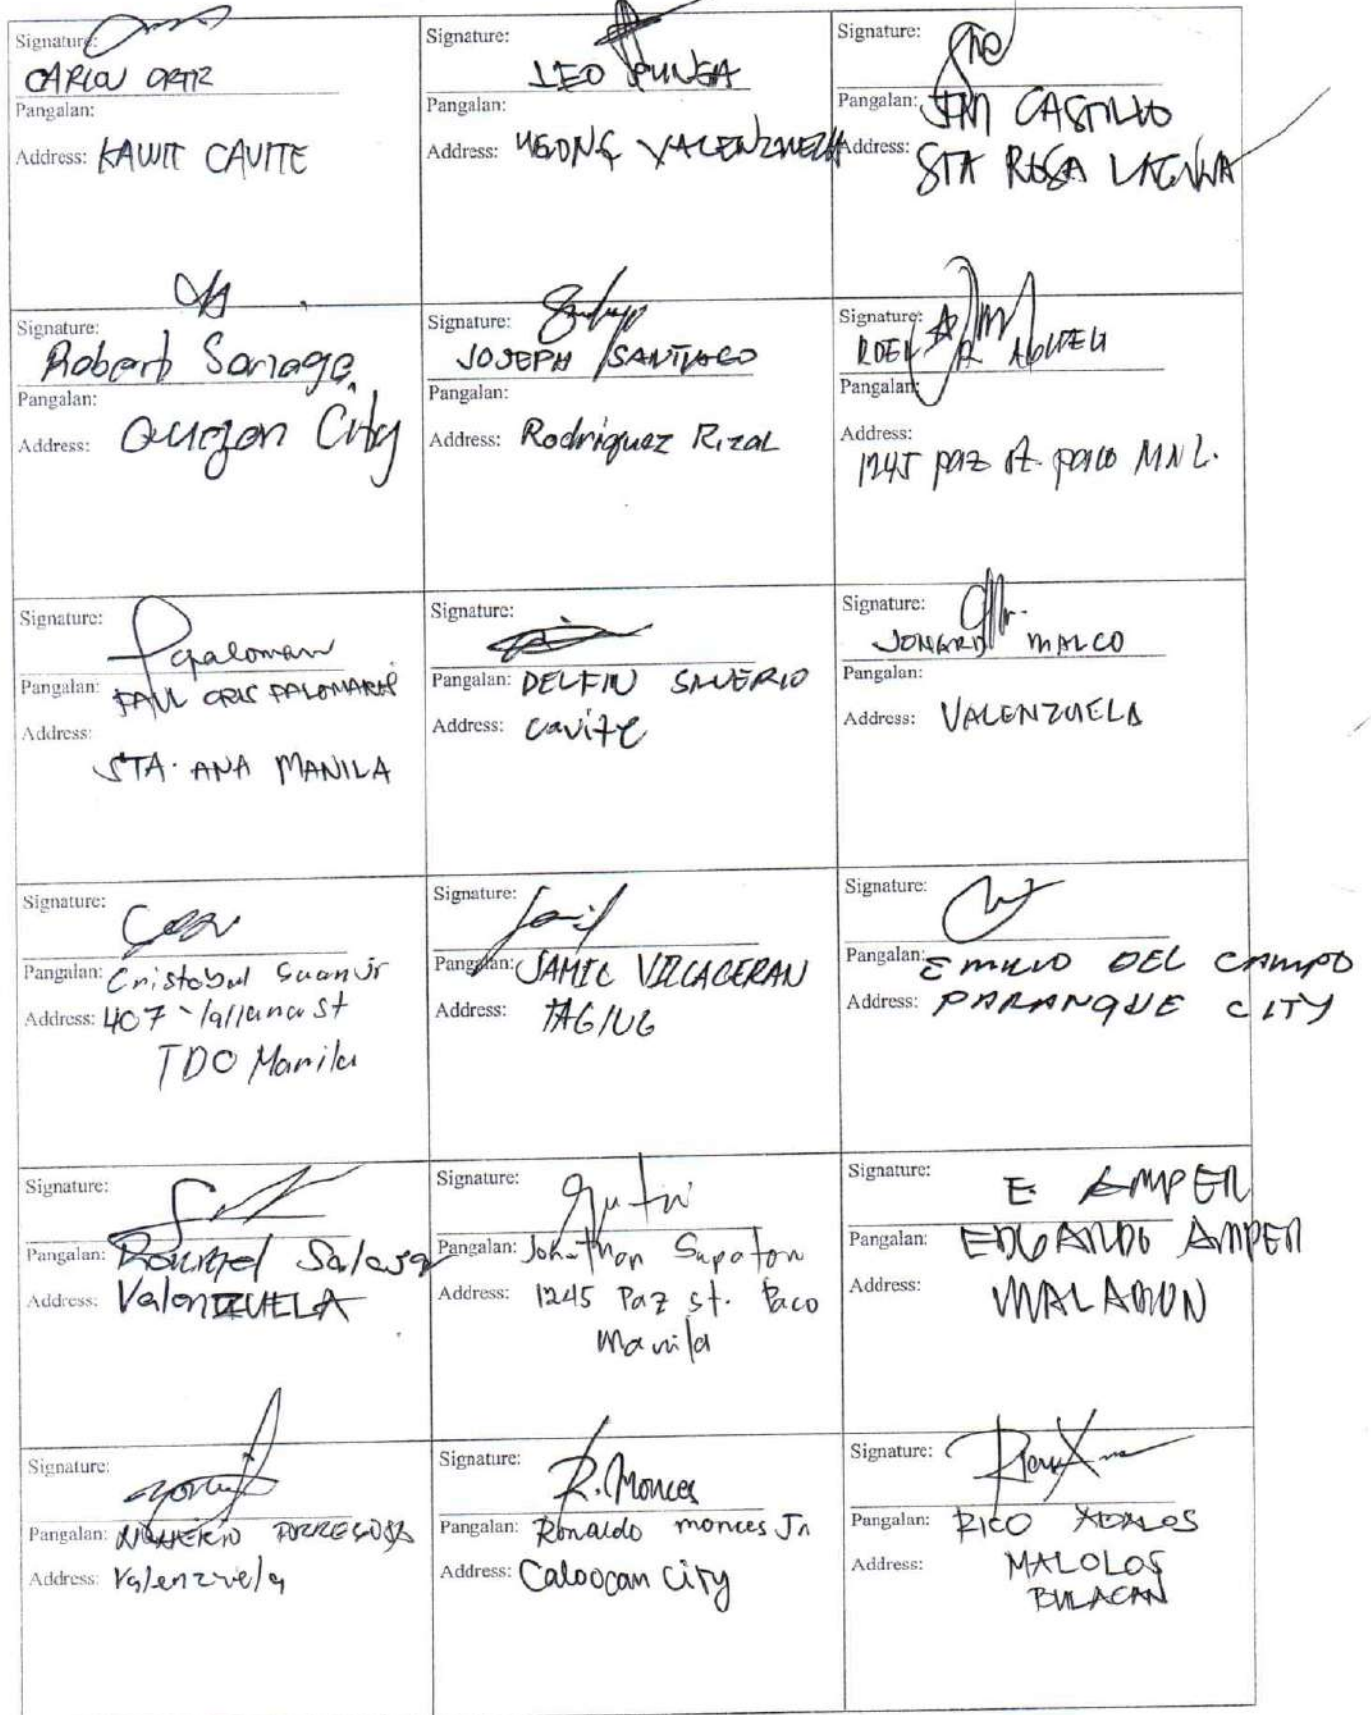 Signature:
CARLOU ORTIZ
Pangalan:
Address: KAWIT CAVITE
Signature:
LEO
Pangalan:
Address: UGONG VALENZUELA
Signature:
Pangalan: JIM CASTILLO
Address: STA ROSA LAGUNA
Signature:
Robert Soriago
Pangalan:
Address: Quezon City
Signature:
JOSEPH SANTIAGO
Pangalan:
Address: Rodriguez Rizal
Signature:
ROEL
Pangalan:
Address:
1245 paz st. paco MNL.
Signature:
Pangalan: PAUL CRIS PALOMARES
Address:
STA. ANA MANILA
Signature:
Pangalan: DELFIN SILVERIO
Address: cavite
Signature:
MALCO
Pangalan:
Address: VALENZUELA
Signature:
Pangalan: Cristobal Suan Jr
Address: 407 St
TDO Manila
Signature:
Pangalan: JAMIL VILLACERAN
Address: TAGIUG
Signature:
Pangalan: EMILIO DEL CAMPO
Address: PARANQUE CITY
Signature:
Pangalan:
Address: ValenZUELA
Signature:
Pangalan: Johnathan Sapaton
Address: 1245 Paz st. Paco
Manila
Signature: E AMPER
Pangalan: EDGARDO AMPER
Address: MALABON
Signature:
Pangalan:
Address: Valenzuela
Signature: R. Monces
Pangalan: Ronaldo monces Jr
Address: Caloocan City
Signature:
Pangalan: RICO
Address: MALOLOS
BULACAN